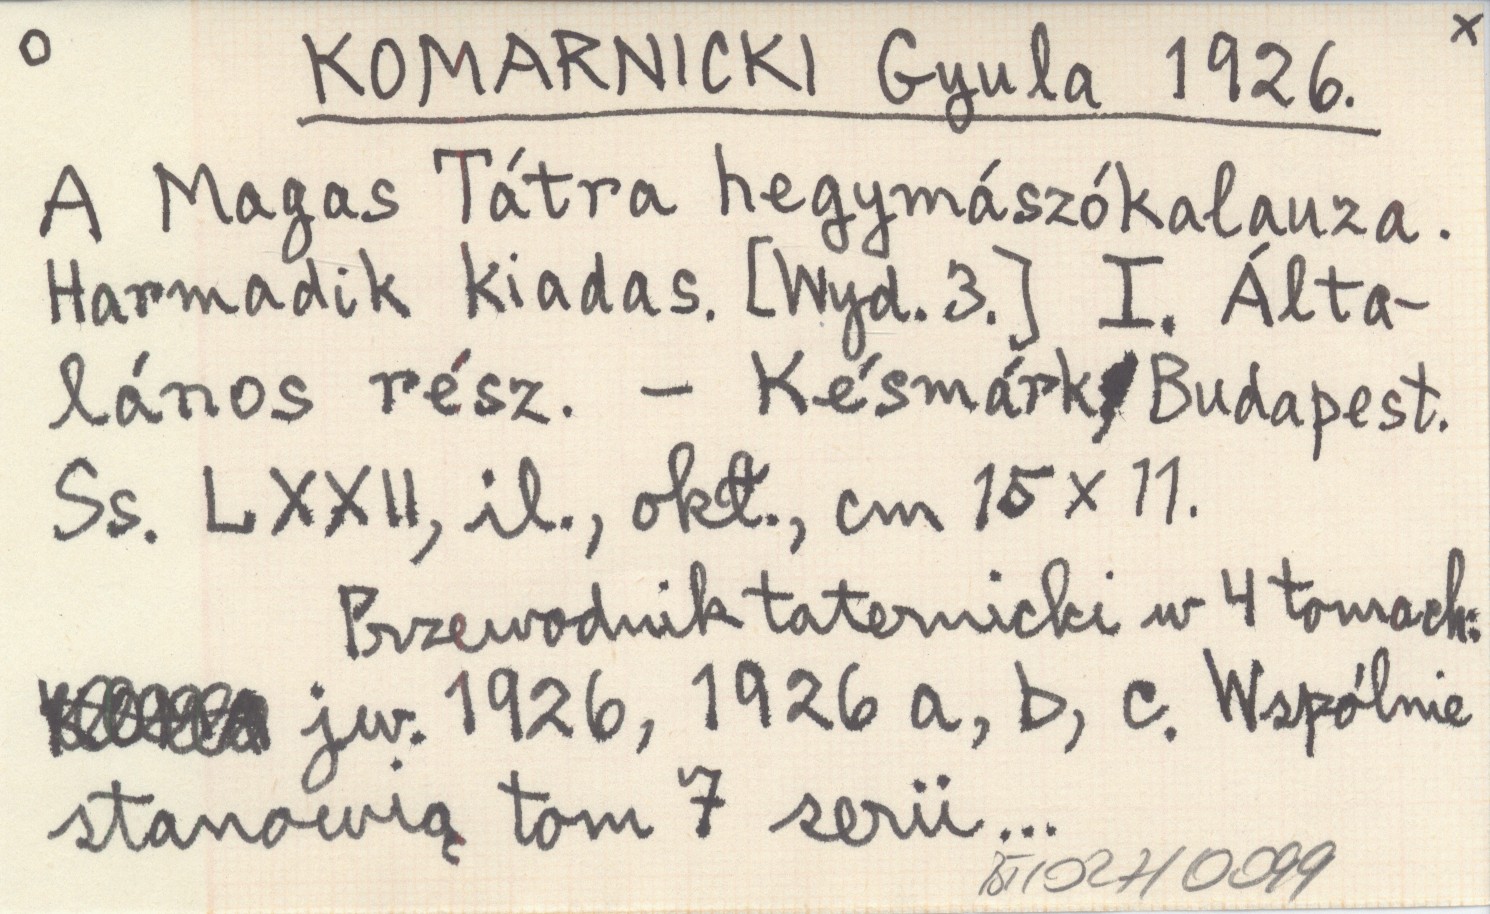 o KOMARNICKI Gyula 1926. x
A Magas Tátra hegymászókalauza.
Harmadik kiadas. [Wyd. 3.] I. Álta-
lános rész. – Késmárk, Budapest.
Ss. LXXII, il., okł., cm 15 x 11.
Przewodnik taternicki w 4 tomach:
jw. 1926, 1926 a, b, c. Wspólnie
stanowią tom 7 serii...